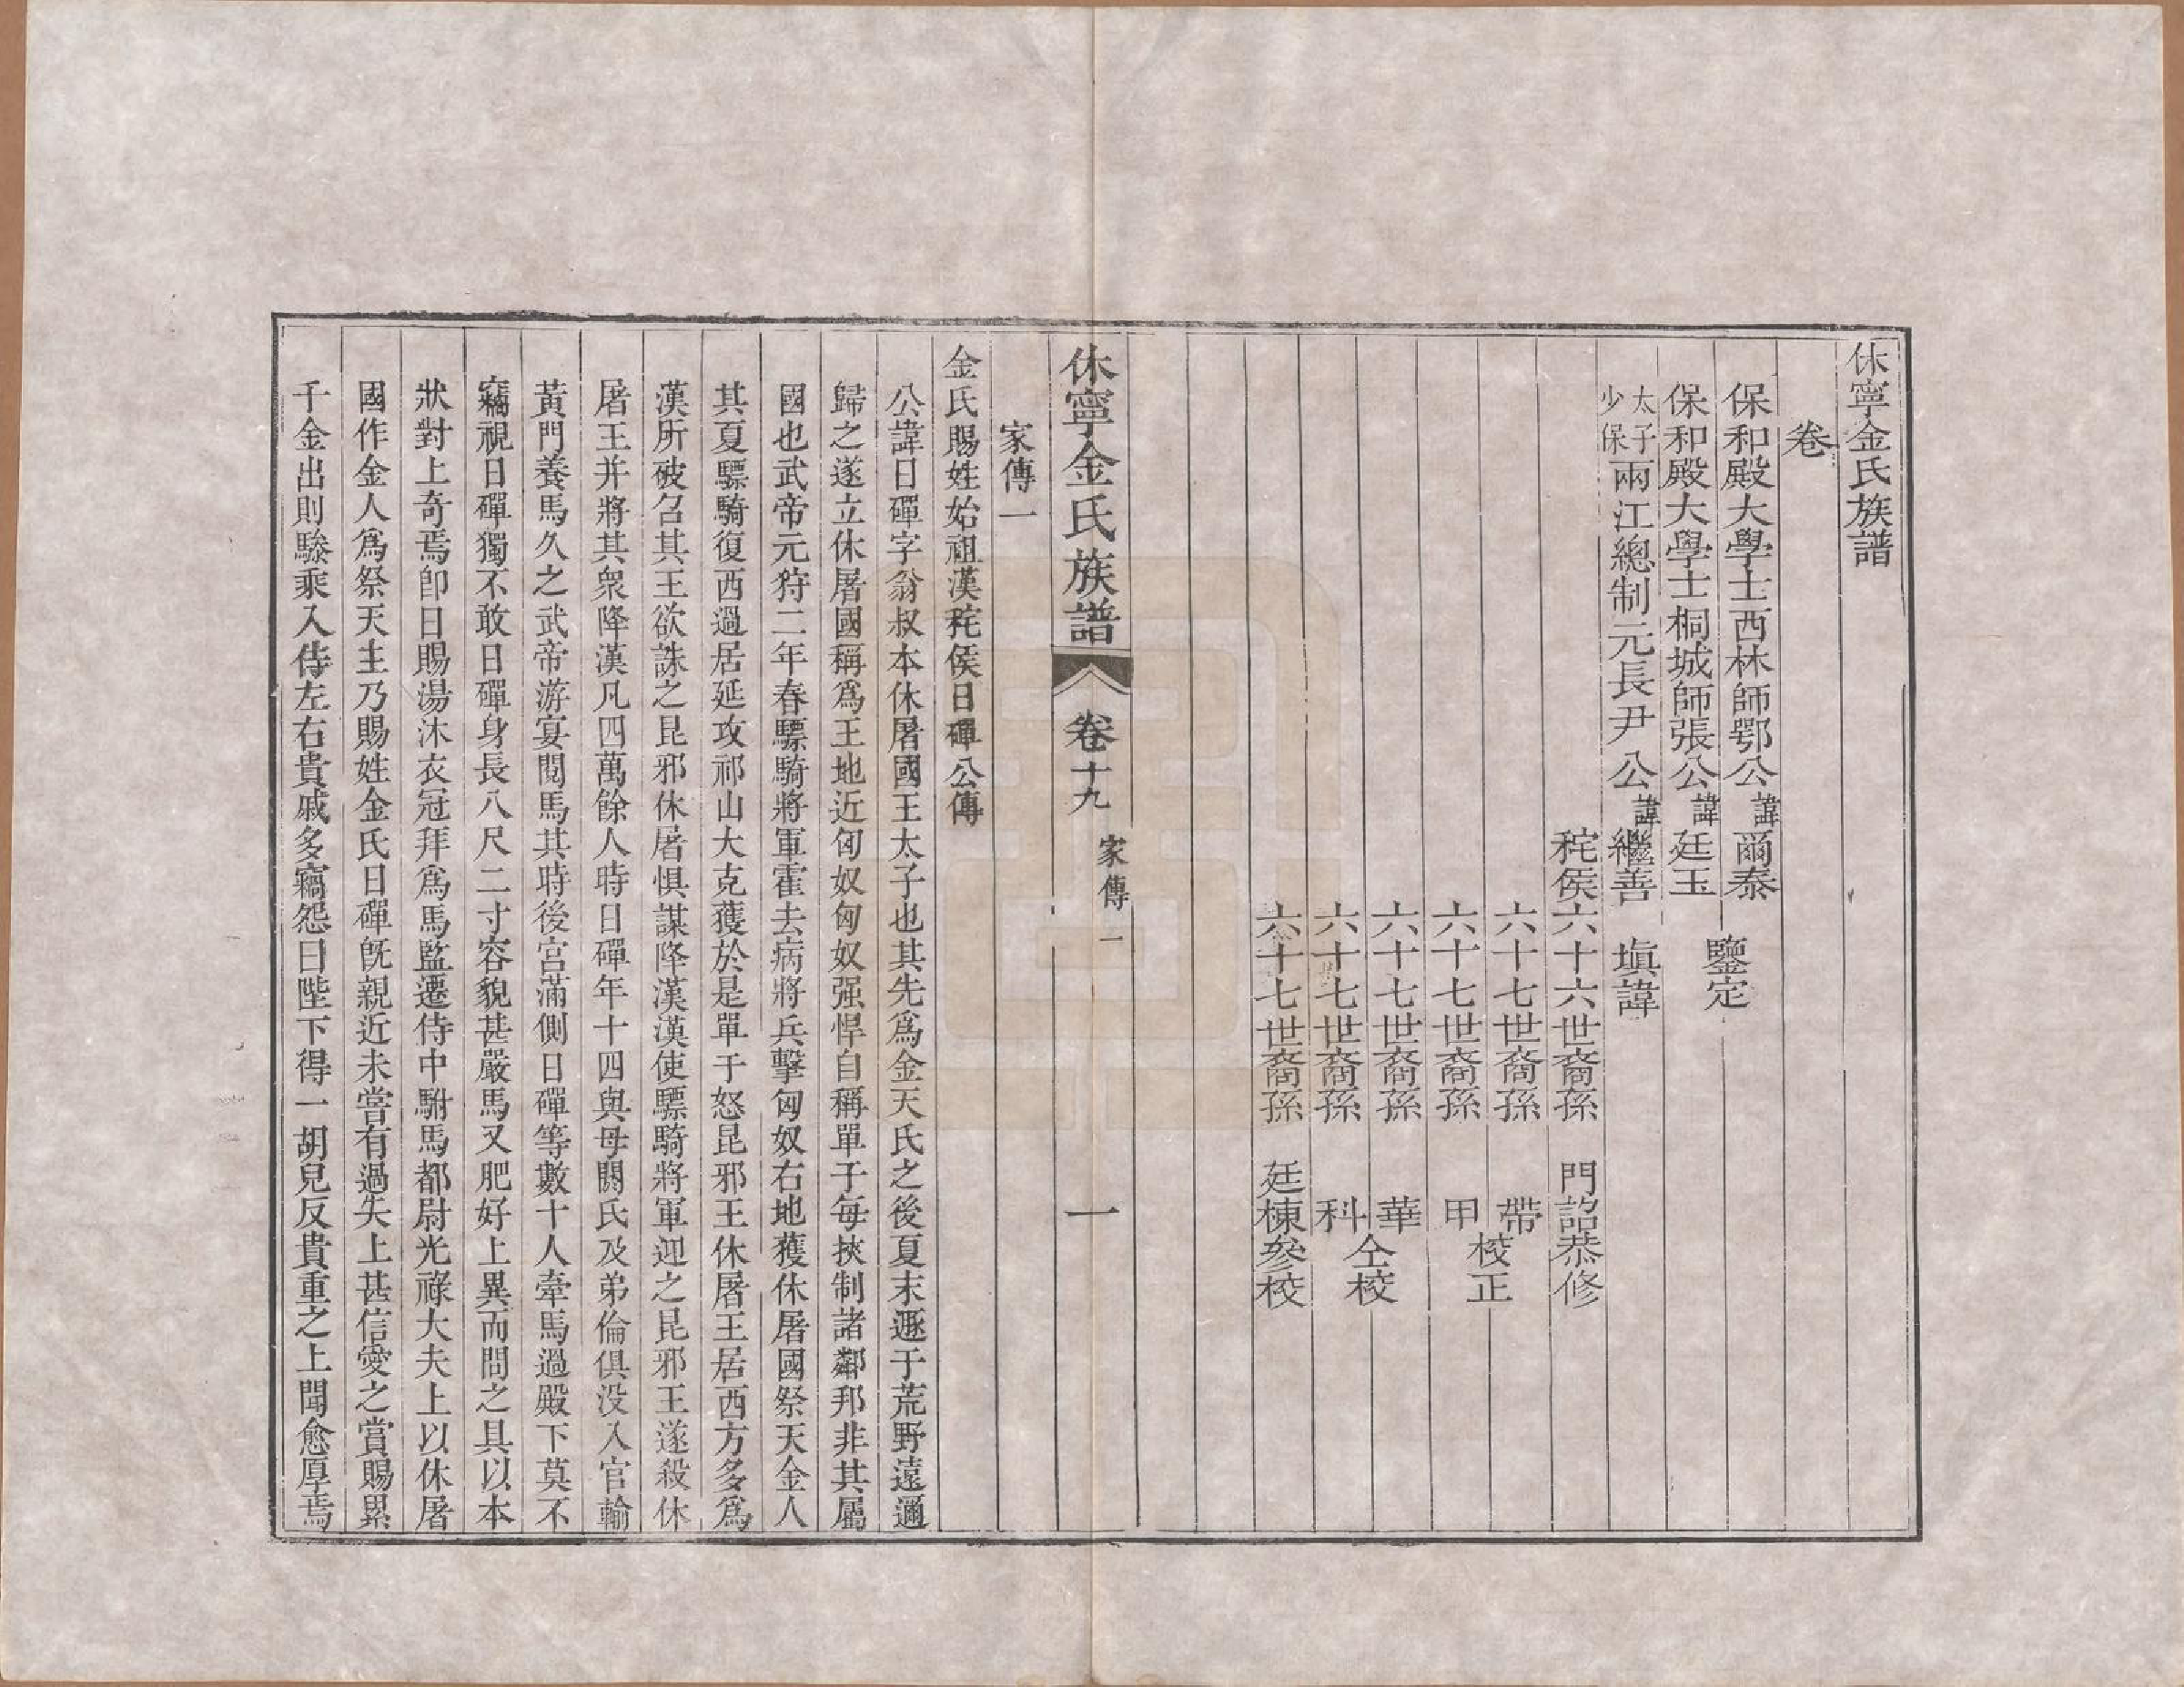 休寧金氏族譜
卷
保和殿大學士西林師鄂公諱爾泰
保和殿大學士桐城師張公諱廷玉
鑒定
太子少保兩江總制元長尹公諱繼善 塡諱
秺侯六十六世裔孫 門詔恭修
六十七世裔孫 帶
六十七世裔孫 甲
校正
六十七世裔孫 華
六十七世裔孫 科
仝校
六十七世裔孫 廷棟參校
休寧金氏族譜 卷十九 家傳一 一
家傳一
金氏賜姓始祖漢秺侯日磾公傳
公諱日磾字翁叔本休屠國王太子也其先爲金天氏之後夏末遯于荒野遠邇
歸之遂立休屠國稱爲王地近匈奴匈奴强悍自稱單于每挾制諸鄰邦非其屬
國也武帝元狩二年春驃騎將軍霍去病將兵擊匈奴右地獲休屠國祭天金人
其夏驃騎復西過居延攻祁山大克獲於是單于怒昆邪王休屠王居西方多爲
漢所破召其王欲誅之昆邪休屠惧謀降漢漢使驃騎將軍迎之昆邪王遂殺休
屠王并將其衆降漢凡四萬餘人時日磾年十四與母閼氏及弟倫俱没入官輸
黃門養馬久之武帝游宴閱馬其時後宮滿側日磾等數十人牽馬過殿下莫不
竊視日磾獨不敢日磾身長八尺二寸容貌甚嚴馬又肥好上異而問之具以本
狀對上奇焉卽日賜湯沐衣冠拜爲馬監遷侍中駙馬都尉光祿大夫上以休屠
國作金人爲祭天主乃賜姓金氏日磾旣親近未嘗有過失上甚信愛之賞賜累
千金出則驂乘入侍左右貴戚多竊怨曰陛下得一胡兒反貴重之上聞愈厚焉